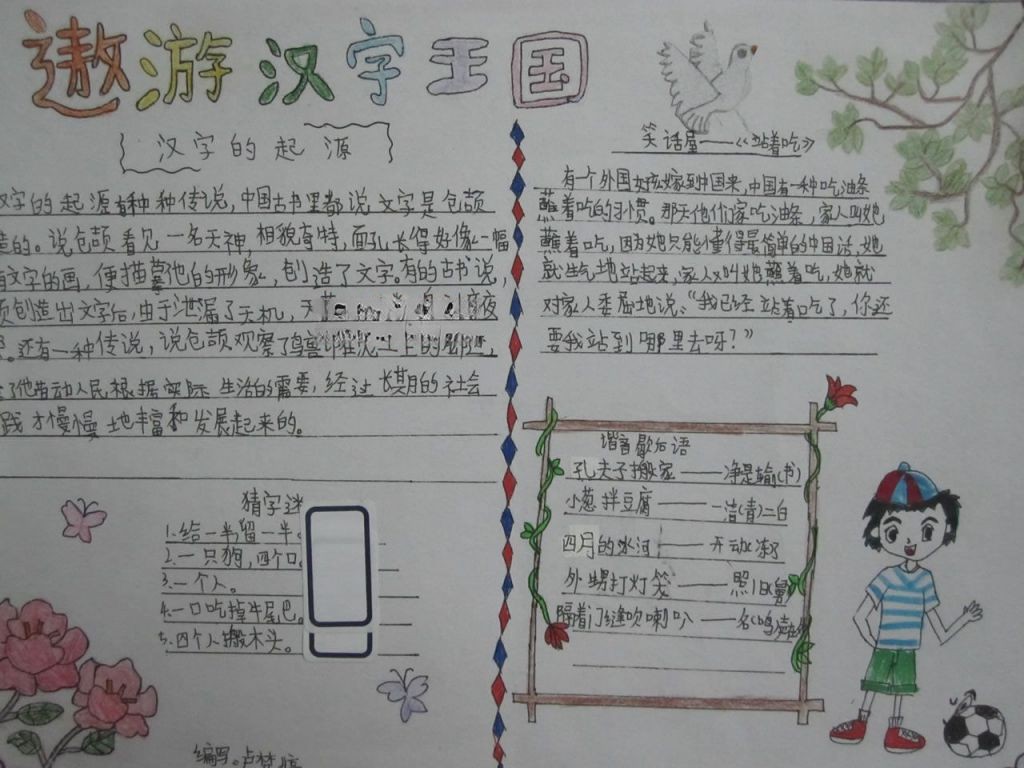 遨游汉字王国
汉字的起源
字的起源有种种传说,中国古书里都说文字是仓颉
造的。说仓颉看见一名天神,相貌奇特,面孔长得好像一幅
有文字的画,便描摹他的形象,创造了文字。有的古书说,
颉创造出文字后,由于泄漏了天机,天
还有一种传说,说仓颉观察了鸟兽
劳动人民根据实际生活的需要,经过长期的社会
践才慢慢地丰富和发展起来的。
猜字迷
1.给一半留一半。
2.一只狗,四个口
3.一个人。
4.一口吃掉牛尾巴。
5.四个人搬木头。
编写。卢梦
笑话屋——《站着吃》
有个外国女孩嫁到中国来,中国有一种吃油条
蘸着吃的习惯。那天他们家吃油条,家人叫她
蘸着吃,因为她只能懂得最简单的中国话,她
就生气地站起来,家人又叫她蘸着吃,她就
对家人委屈地说:“我已经站着吃了,你还
要我站到哪里去呀?”
谐音歇后语
孔夫子搬家——净是输(书)
小葱拌豆腐——一清(青)二白
四月的冰河——开动(冻)
外甥打灯笼——照旧(舅)
隔着门缝吹喇叭——名(鸣)